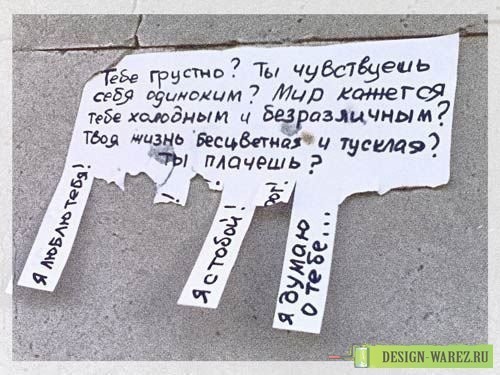 Тебе грустно? Ты чувствуешь
себя одиноким? Мир кажется
тебе холодным и безразличным?
Твоя жизнь бесцветная и тусклая?
Ты плачешь?
Я люблю тебя!
Я с тобой!
Я думаю
о тебе...
DESIGN-WAREZ.RU